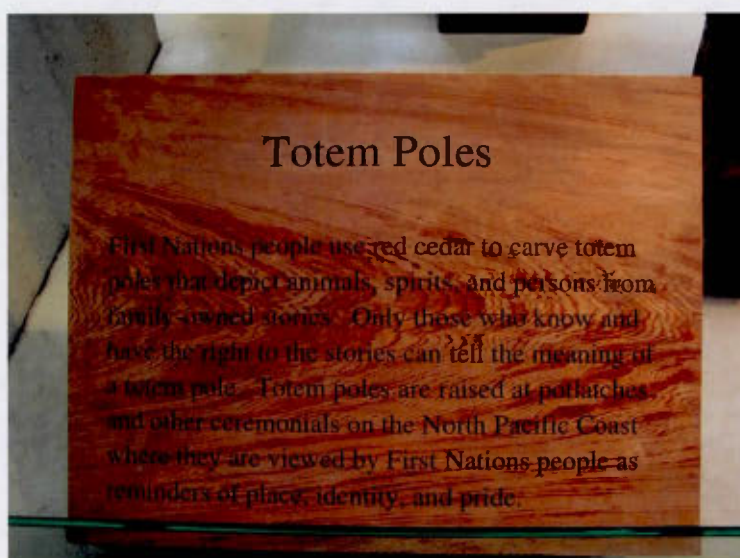 Totem Poles
First Nations people use red cedar to carve totem
poles that depict animals, spirits, and persons from
family-owned stories. Only those who know and
have the right to the stories can tell the meaning of
a totem pole. Totem poles are raised at potlatches
and other ceremonials on the North Pacific Coast
where they are viewed by First Nations people as
reminders of place, identity, and pride.